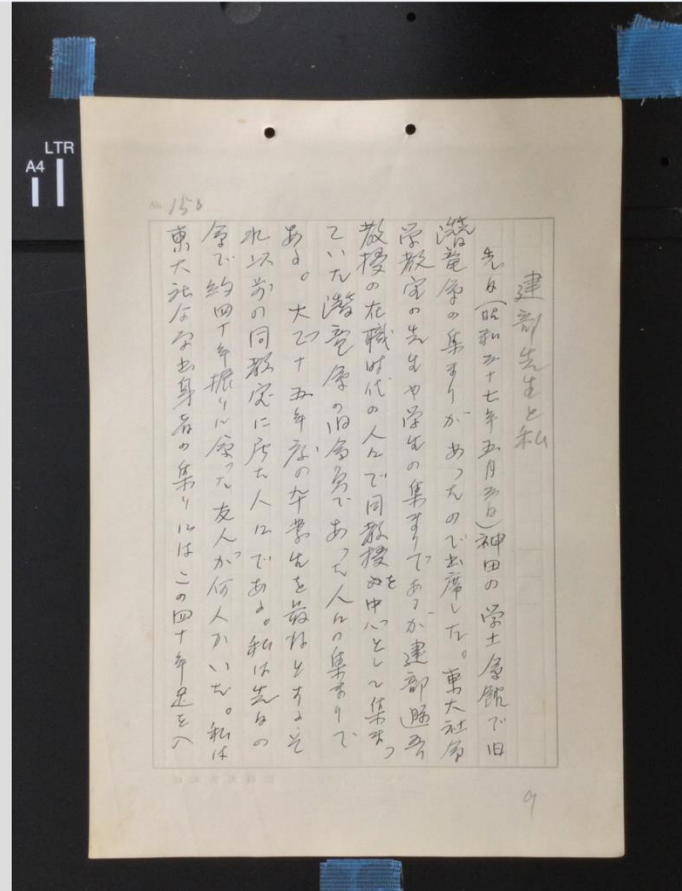 LTR
A4
No. 158
建部先生と私
先日(昭和三十七年五月三日)神田の学士会館で旧
潜竜会の集まりがあつたので出席した。東大社会
学教室の先生や学生の集まりであるが建部遯吾
教授の在職時代の人々で同教授を中心として集まつ
ていた潜竜会の旧会員であつた人々の集まりで
ある。大正十五年度の卒業生を最Oとするそ
れ以前の同教室に居た人々である。私は先日の
会で約四十年振りに会つた友人が何人かいた。私は
東大社会学出身者の集りにはこの四十年足を入
9